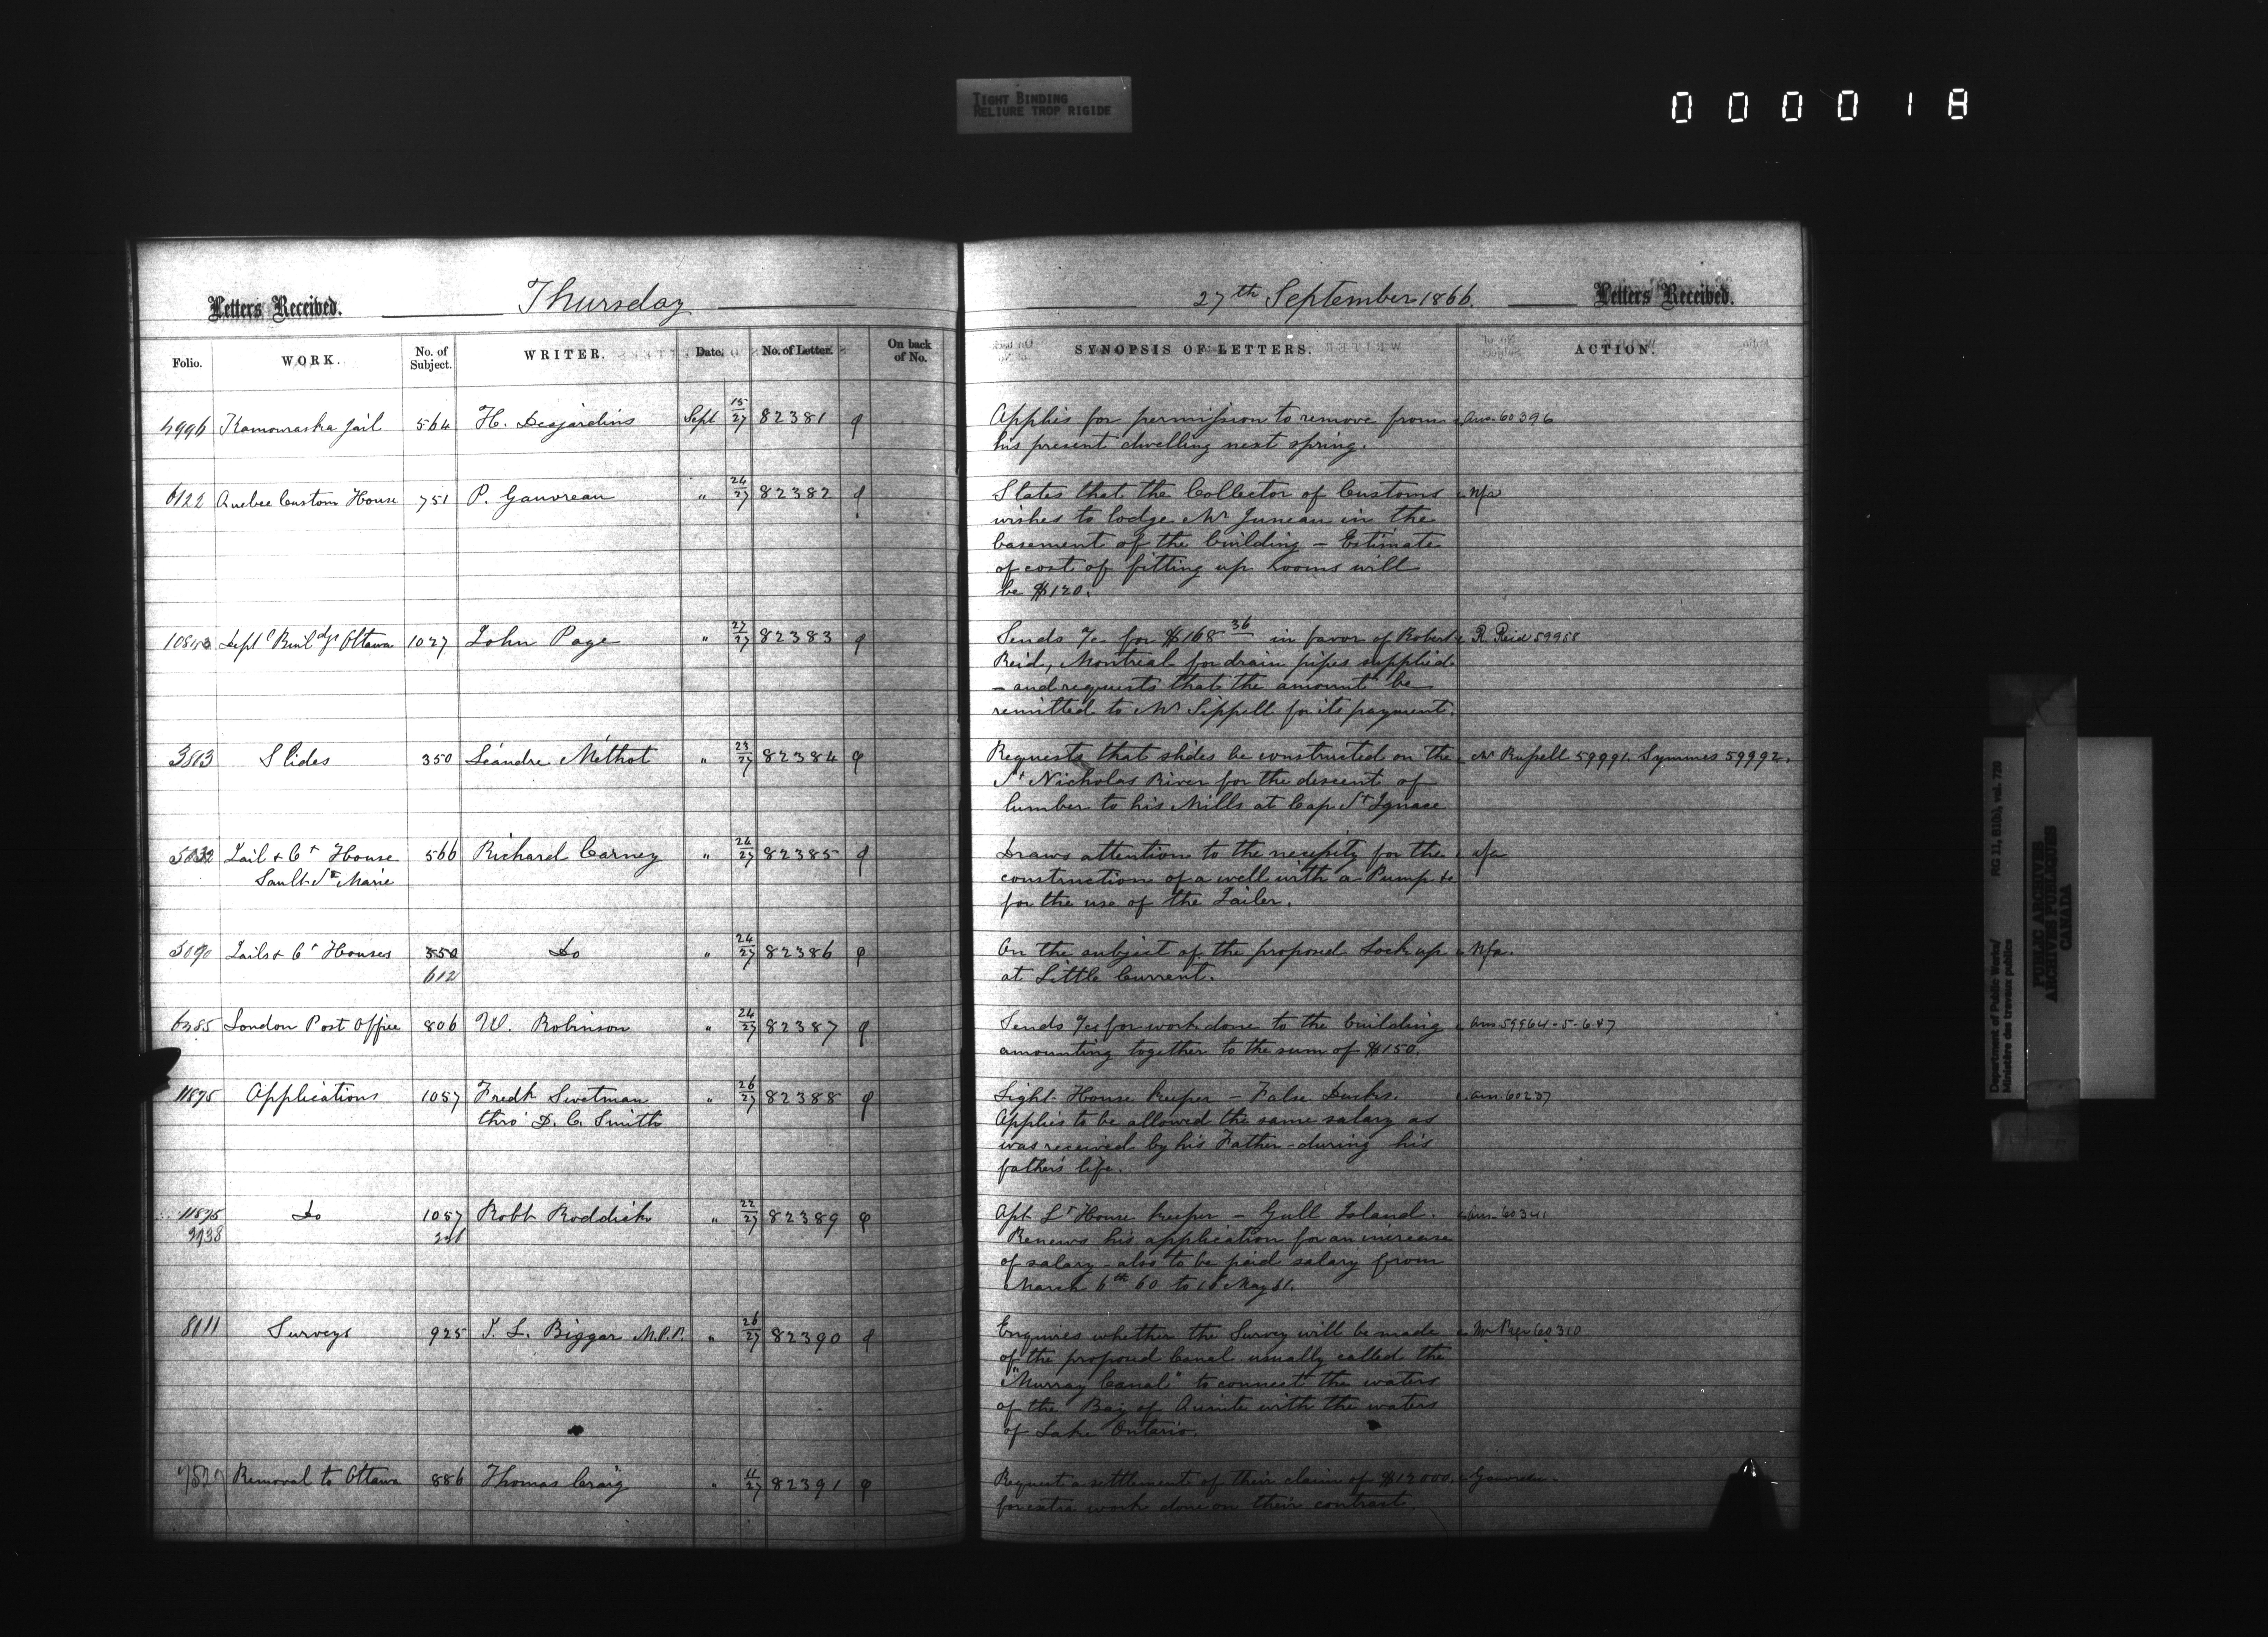 TIGHT BINDING
RELIURE TROP RIGIDE
000018
Letters Received. Thursday
Folio. WORK. No. of Subject. WRITER. Date. No. of Letter. On back of No.
4996 Kamouraska Jail 564 H. Desjardins Sept 15/27 82381
6122 Quebec Custom House 751 P. Gauvreau " 24/27 82382
Deptl Buildgs Ottawa 1027 John Page " 27/27 82383
3813 Slides 350 Léandre Méthot " 23/27 82384
Jail & Ct House 566 Richard Carney " 24/27 82385
Sault Ste Marie
Jails & Ct Houses 550 Do " 24/27 82386
612
6285 London Post Office 806 W. Robinson " 24/27 82387
11895 Applications 1057 Fredk Swetman " 26/27 82388
thro' D. C. Smith
11895 Do 1057 Robt Roddick " 22/27 82389
9938
8111 Surveys 925 J. L. Biggar M.P.P. " 26/27 82390
Removal to Ottawa 886 Thomas Craig " 11/27 82391
27th September 1866. Letters Received.
SYNOPSIS OF LETTERS. ACTION.
Applies for permission to remove from Ans. 60396
his present dwelling next spring.
States that the Collector of Customs Nfa
wishes to lodge Mr Juneau in the
basement of the building – Estimate
of cost of fitting up rooms will
be $120.
Sends a/c for $168 36 in favor of Robert R Reid 59958
Reid, Montreal for drain pipes supplied
– and requests that the amount be
remitted to Mr Sippell for its payment.
Requests that slides be constructed on the Mr Russell 59991. Symmes 59992.
St Nicholas River for the descent of
lumber to his Mills at Cap St Ignace
Draws attention to the necessity for the nfa
construction of a well with a Pump &c
for the use of the Jailer.
On the subject of the proposed Lock up Nfa.
at Little Current.
Sends a/cs for work done to the building Ans 59964-5-6&7
amounting together to the sum of $150.
Light House Keeper – False Ducks. Ans. 60287
Applies to be allowed the same salary as
was received by his Father – during his
father's life.
Apt Lt House Keeper – Gull Island. Ans. 60341
Renews his application for an increase
of salary – also to be paid salary from
March 6th 60 to May 61.
Enquires whether the Survey will be made 60310
of the proposed Canal usually called the
"Murray Canal" to connect the waters
of the Bay of Quinte with the waters
of Lake Ontario.
Request a settlement of their claim of $12000. Gauvreau
for extra work done on their contract
Department of Public Works/ RG 11, B1(b), vol. 728
Ministère des travaux publics
PUBLIC ARCHIVES
ARCHIVES PUBLIQUES
CANADA